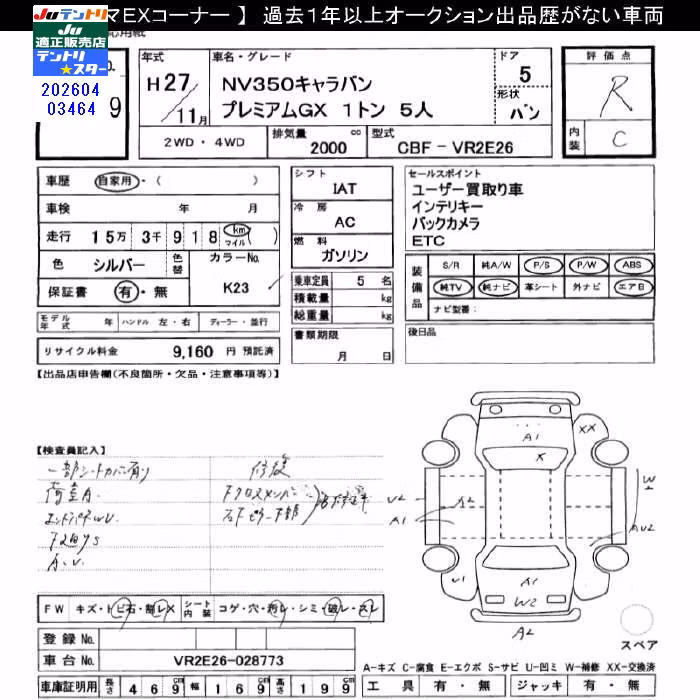 マEXコーナー 】 過去１年以上オークション出品歴がない車両
Juテントリ
Ju
適正販売店
テントリ
★スター
202604
03464
9
No.
年式
H27/11月
車名・グレード
NV350キャラバン
プレミアムGX １トン ５人
ドア
5
形状
バン
評価点
R
内装
C
2WD ・ 4WD
排気量
2000
cc
型式
CBF － VR2E26
車歴
自家用・（ ）
車検
年 月
走行
１５万 ３千 ９ １ ８
km
マイル
（ ）
色
シルバー
色替
カラーNo.
K23
保証書
有・無
シフト
IAT
冷房
AC
燃料
ガソリン
乗車定員 5 名
積載量 kg
総重量 kg
書類期限
月 日
セールスポイント
ユーザー買取り車
インテリキー
バックカメラ
ETC
装備品
S/R 純A/W P/S P/W ABS
純TV 純ナビ 革シート 外ナビ エアB
ナビ型番：
後日品
モデル年式 年 ハンドル 左・右 ディーラー・並行
リサイクル料金 9,160 円 預託済
【出品店申告欄(不良箇所・欠品・注意事項等)】
【検査員記入】
一部シートカバー有り
荷室A
A.U.
修復
A1
XX
K
U2
A1
A2
W2
AU2
U1
A1
W2
A2
スペア
FW キズ・トビ石・割レX
シート内装
コゲ・穴・汚レ・シミ・破レ・スレ
登録 No.
車台 No. VR2E26-028773
車庫証明用 長さ 469cm 幅 169cm 高さ 199cm
A-キズ C-腐食 E-エクボ S-サビ U-凹ミ W-補修 XX-交換済
工具 有・無 ジャッキ 有・無